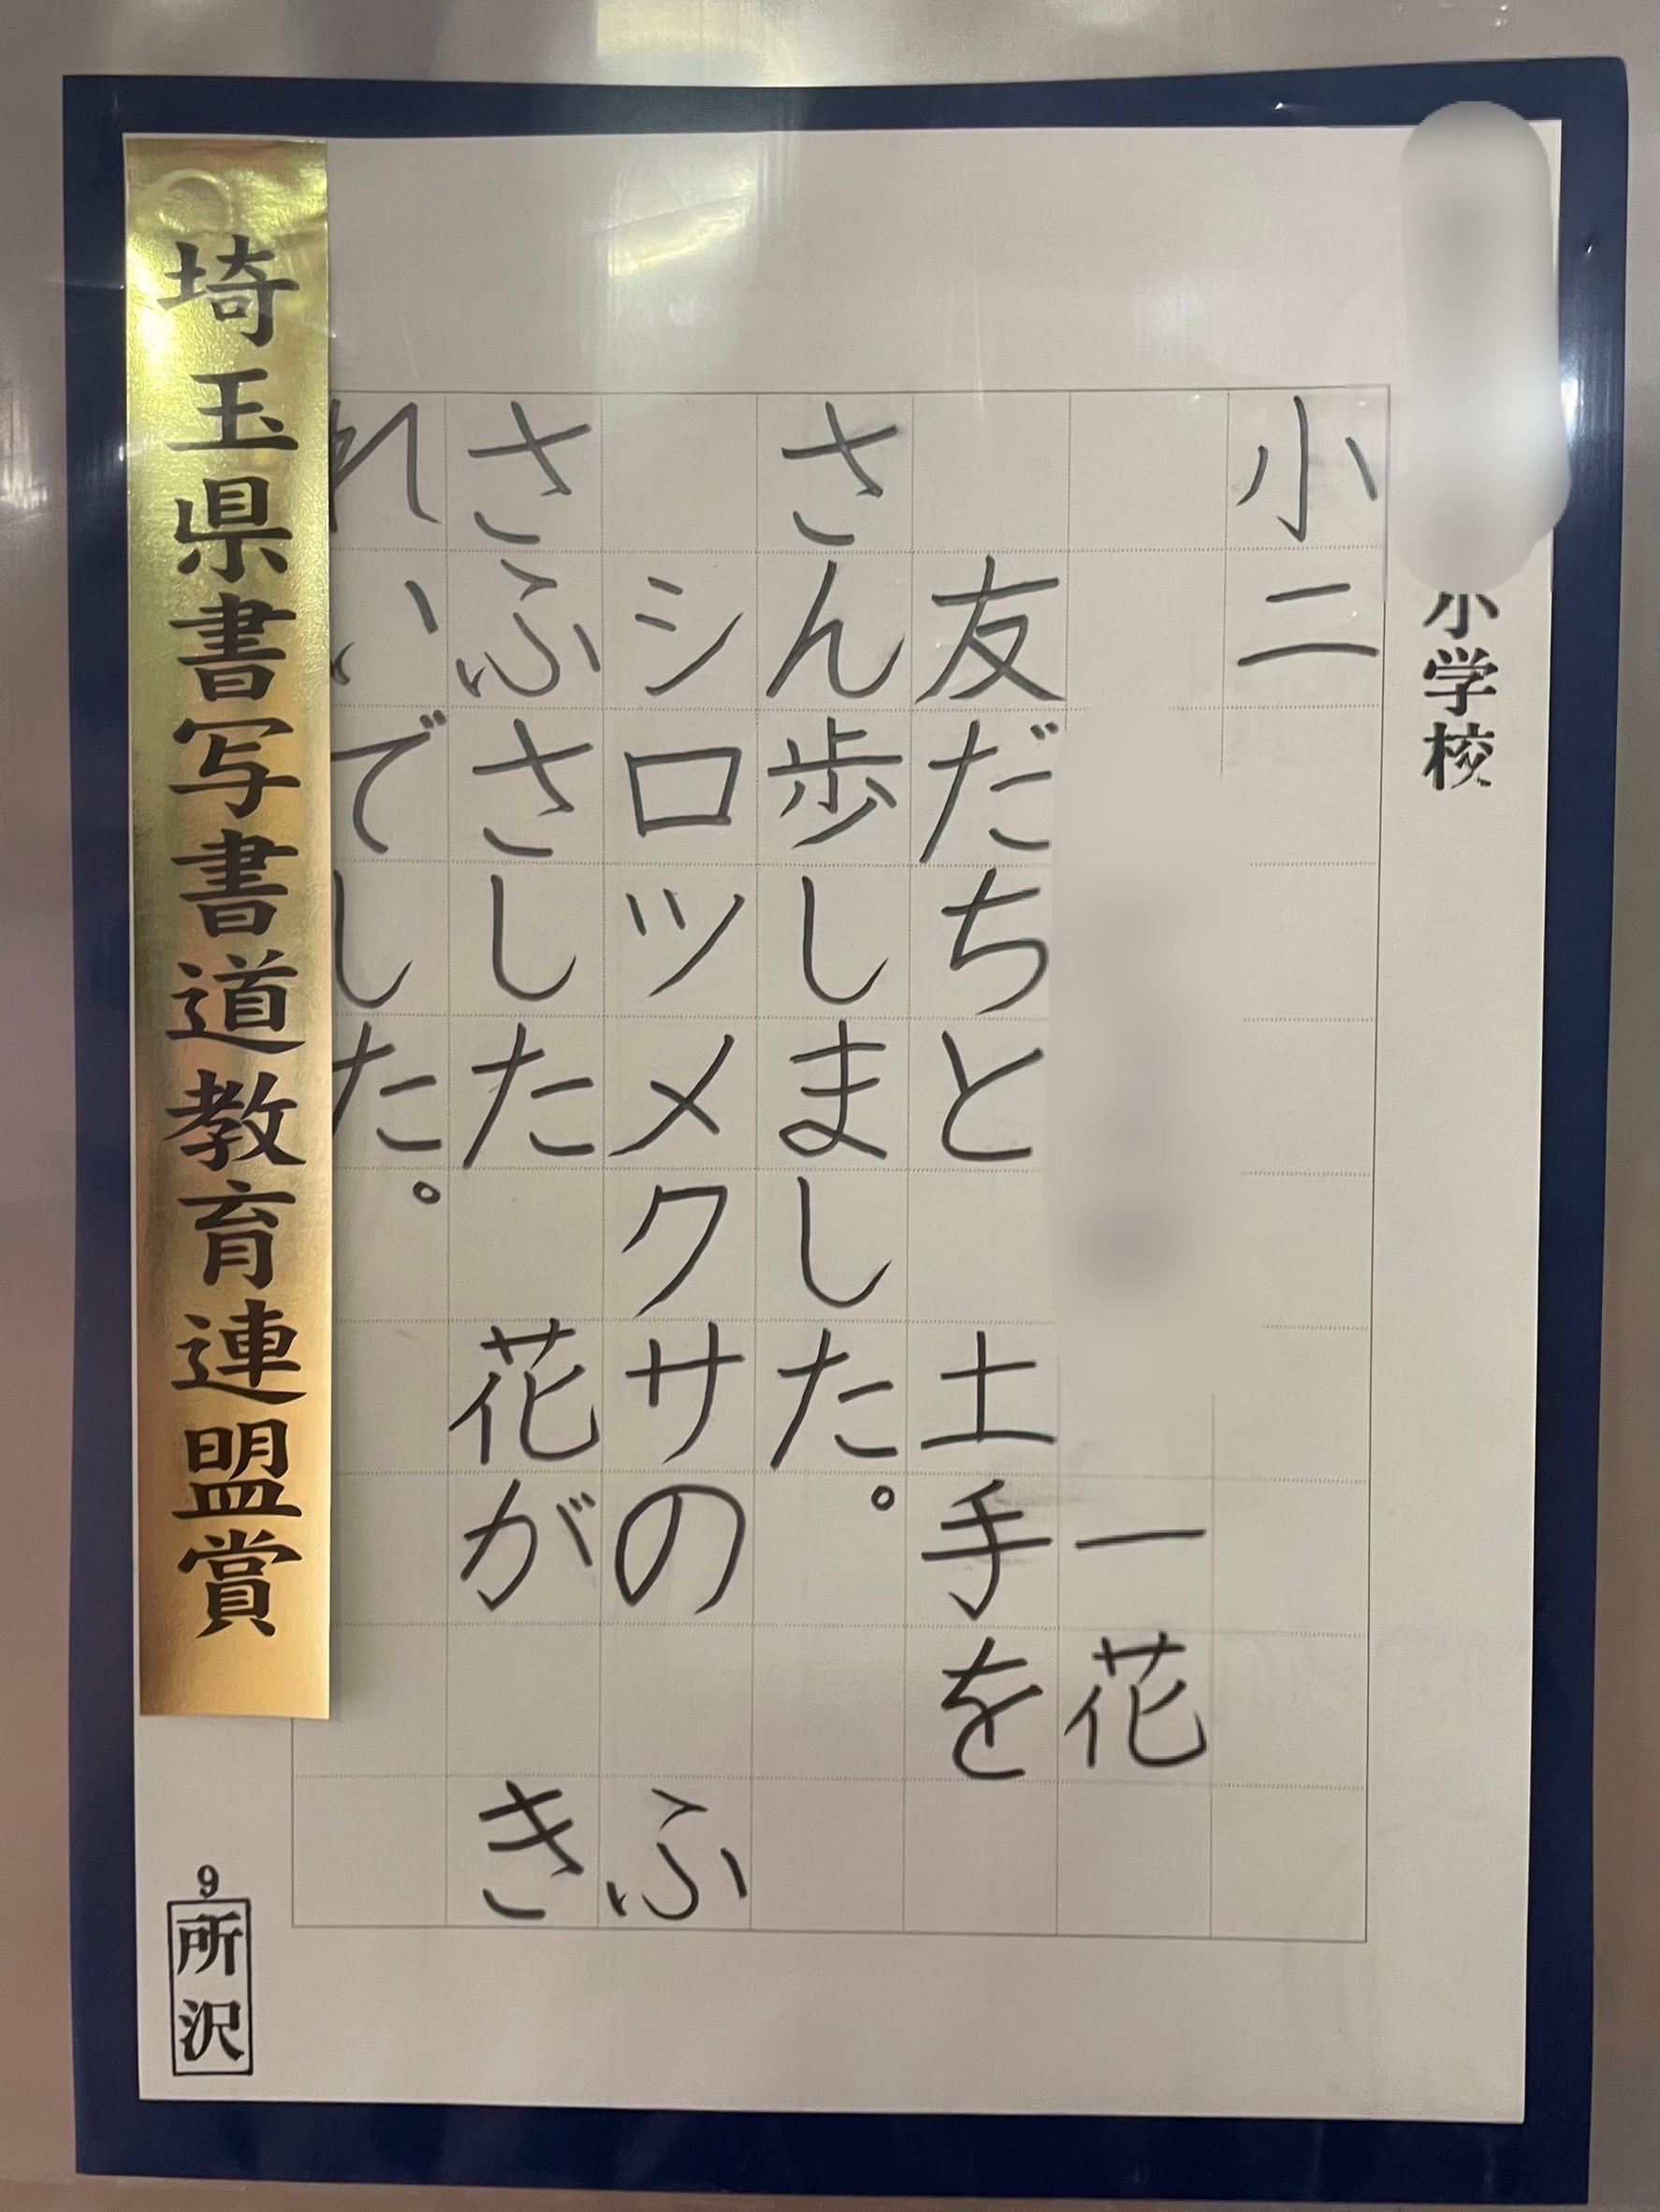 小学校
小二
一花
友だちと 土手を
さん歩しました。
シロツメクサの ふ
さふさした 花が き
れいでした。
埼玉県書写書道教育連盟賞
9
所沢